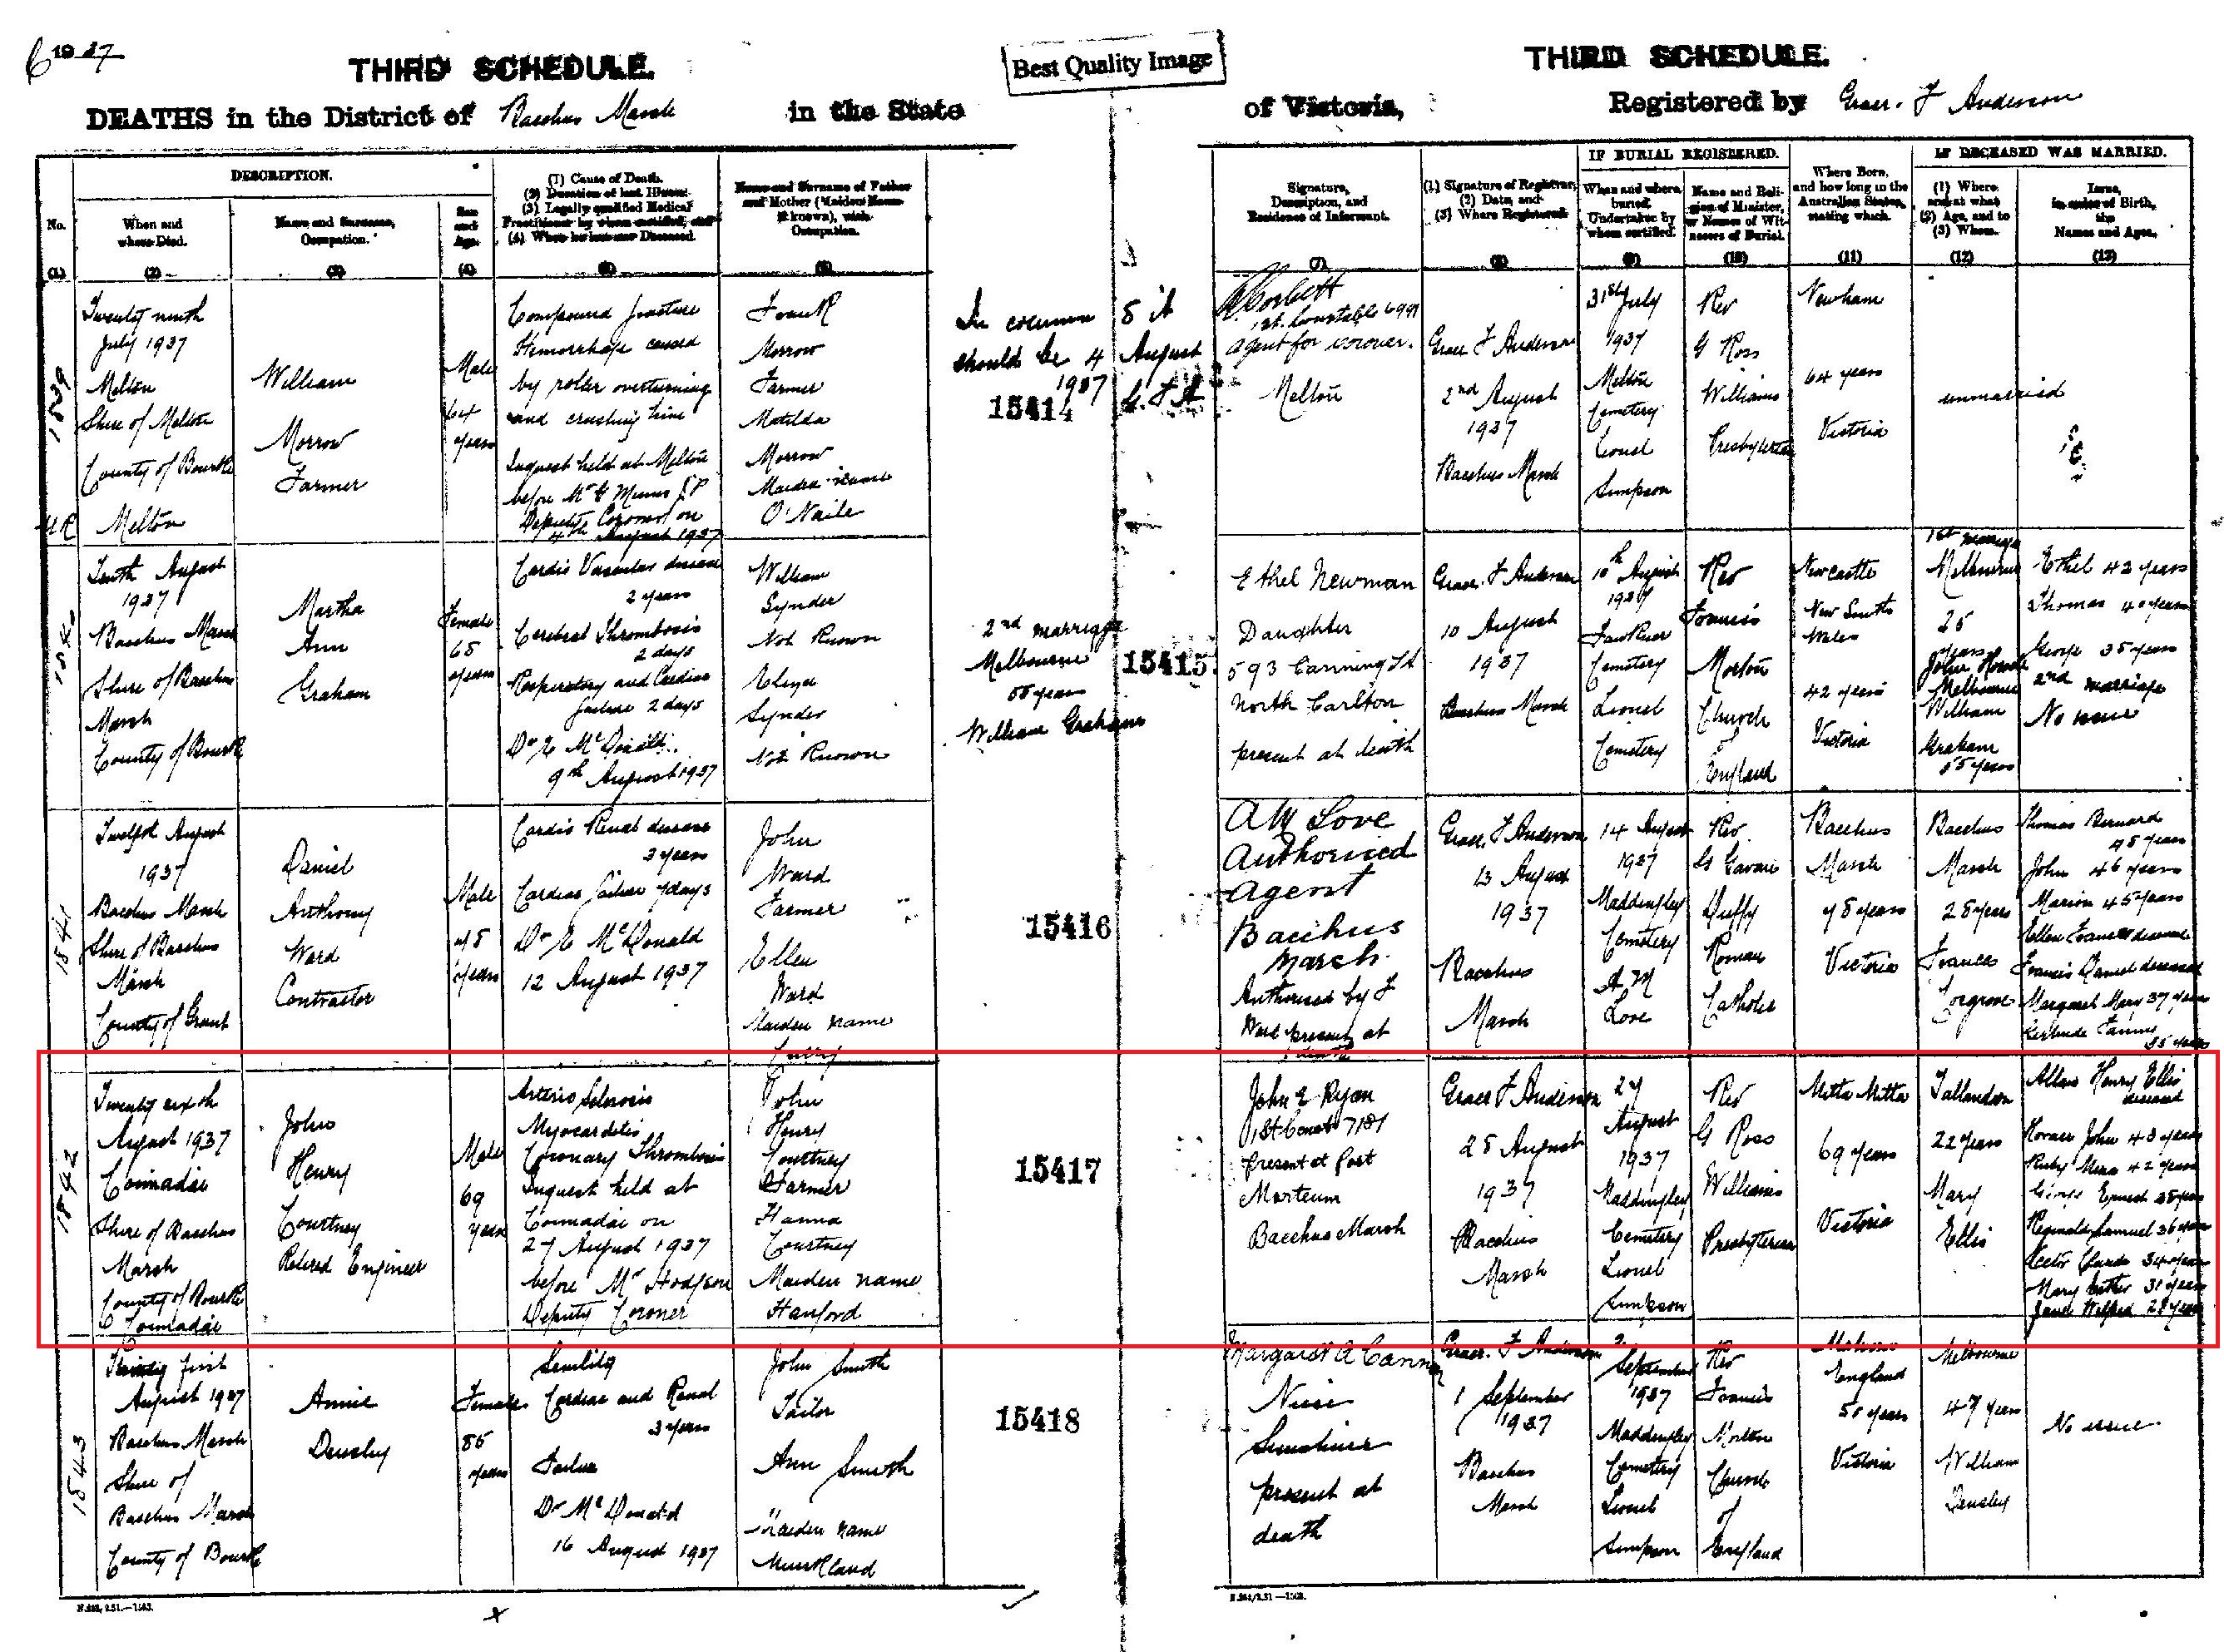 6 1937
THIRD SCHEDULE.
DEATHS in the District of Bacchus Marsh in the State
Best Quality Image
THIRD SCHEDULE.
of Victoria, Registered by Grace. F Anderson
No.
(1)
DESCRIPTION.
When and
where Died.
(2)
Name and Surname,
Occupation.
(3)
Sex
and
Age.
(4)
(1) Cause of Death.
(2) Duration of last Illness.
(3) Legally qualified Medical
Practitioner by whom certified, and
(4) When he last saw Deceased.
(5)
Name and Surname of Father
and Mother (Maiden Name
if known), with
Occupation.
(6)
Signature,
Description, and
Residence of Informant.
(7)
(1) Signature of Registrar,
(2) Date, and
(3) Where Registered.
(8)
IF BURIAL REGISTERED.
When and where
buried.
Undertaker by
whom certified.
(9)
Name and Reli-
gion of Minister,
or Names of Wit-
nesses of Burial.
(10)
Where Born,
and how long in the
Australian States,
stating which.
(11)
IF DECEASED WAS MARRIED.
(1) Where
and at what
(2) Age, and to
(3) Whom.
(12)
Issue,
in order of Birth,
the
Names and Ages.
(13)
1839
Twenty ninth
July 1937
Melton
Shire of Melton
County of Bourke
Melton
William
Morrow
Farmer
Male
64
years
Compound fracture
Hemorrhage caused
by roller overturning
and crushing him
Inquest held at Melton
before Mr G Minns J.P
Deputy Coroner on
4th August 1937
Frank
Morrow
Farmer
Matilda
Morrow
Maiden name
O'Naile
In column 8 it
should be 4 August
1937
G. F A
15414
Corbett
1st. Constable 6991
agent for coroner.
Melton
Grace F Anderson
2nd August
1937
Bacchus Marsh
31st July
1937
Melton
Cemetery
Lionel
Simpson
Rev
G Ross
Williams
Presbyterian
Newham
64 years
Victoria
unmarried
1840
Tenth August
1937
Bacchus Marsh
Shire of Bacchus
Marsh
County of Bourke
Martha
Ann
Graham
Female
68
years
Cardio Vascular disease
2 years
Cerebral Thrombosis
2 days
Respiratory and Cardiac
failure 2 days
Dr E McDonald
9th August 1937
William
Synder
Not Known
Synder
Not Known
2nd marriage
Melbourne
55 years
William Graham
15415
Ethel Newman
Daughter
593 Canning St
North Carlton
present at death
Grace. F Anderson
10 August
1937
Bacchus Marsh
10th August
1937
Fawkner
Cemetery
Lionel
Cemetery
Rev
Francis
Morton
Church
of
England
Newcastle
New South
Wales
42 years
Victoria
1st marriage
Melbourne
25
years
John
Melbourne
William
Graham
55 years
Ethel 42 years
Thomas 40 years
George 35 years
2nd marriage
No issue
1841
Twelfth August
1937
Bacchus Marsh
Shire of Bacchus
Marsh
County of Grant
Daniel
Anthony
Ward
Contractor
Male
78
years
Cardio Renal disease
3 years
Cardiac failure 7 days
Dr E McDonald
12 August 1937
John
Ward
Farmer
Ellen
Ward
Maiden name
15416
AM Love
Authorised
Agent
Bacchus
Marsh.
Authorised by F
Ward present at
death
Grace. F Anderson
13 August
1937
Bacchus
Marsh
14 August
1937
Maddingley
Cemetery
A M
Love
Rev
Duffy
Roman
Catholic
Bacchus
Marsh
78 years
Victoria
Bacchus
Marsh
28 years
Frances
Cosgrove
Thomas Bernard
48 years
John 46 years
Marion 45 years
Ellen Frances deceased
Francis Daniel deceased
Margaret Mary 37 years
Gertrude
35 years
1842
Twenty sixth
August 1937
Coimadai
Shire of Bacchus
Marsh
County of Bourke
Coimadai
John
Henry
Courtney
Retired Engineer
Male
69
years
Arterio Sclerosis
Myocarditis
Coronary Thrombosis
Inquest held at
Coimadai on
27 August 1937
before Mr Hodgson
Deputy Coroner
John
Henry
Courtney
Farmer
Hanna
Courtney
Maiden name
Hanford
15417
John E Ryan
1st Const 7181
Present at Post
Morteum
Bacchus Marsh
Grace F Anderson
28 August
1937
Bacchus
Marsh
27
August
1937
Maddingley
Cemetery
Lionel
Simpson
Rev
G Ross
Williams
Presbyterian
Mitta Mitta
69 years
Victoria
Tallandoon
22 years
Mary
Ellis
Allan Henry Ellis
deceased
Horace John 43 years
Ruby Mina 42 years
George Ernest 38 years
Reginald Samuel 36 years
Victor Claude 34 years
Mary Esther 31 years
28 years
1843
Thirty first
August 1937
Bacchus Marsh
Shire of
Bacchus Marsh
County of Bourke
Annie
Densley
Female
85
years
Senility
Cardiac and Renal
3 years
Failure
Dr McDonald
16 August 1937
John Smith
Tailor
Ann Smith
Maiden name
Muirkland
15418
Margaret A Canny
Nurse
Sunshine
present at
death
Grace. F Anderson
1 September
1937
Bacchus
Marsh
2
September
1937
Maddingley
Cemetery
Lionel
Simpson
Rev
Francis
Morton
Church
of
England
England
50 years
Victoria
Melbourne
47 years
William
Densley
No issue